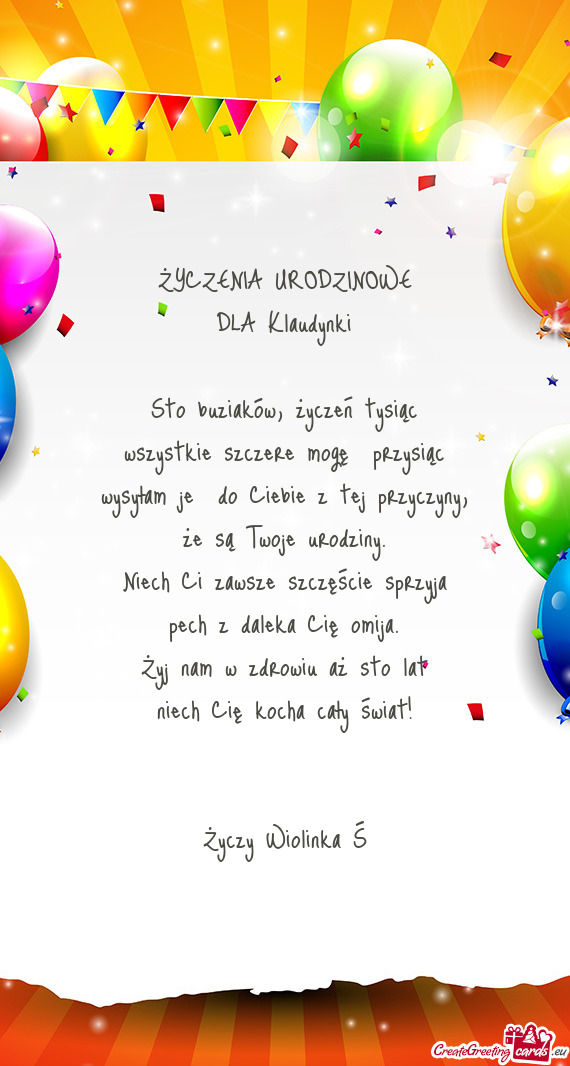 ŻYCZENIA URODZINOWE
DLA Klaudynki
Sto buziaków, życzeń tysiąc
wszystkie szczere mogę przysiąc
wysyłam je do Ciebie z tej przyczyny,
że są Twoje urodziny.
Niech Ci zawsze szczęście sprzyja
pech z daleka Cię omija.
Żyj nam w zdrowiu aż sto lat
niech Cię kocha cały świat!
Życzy Wiolinka Ś
CreateGreetingcards.eu